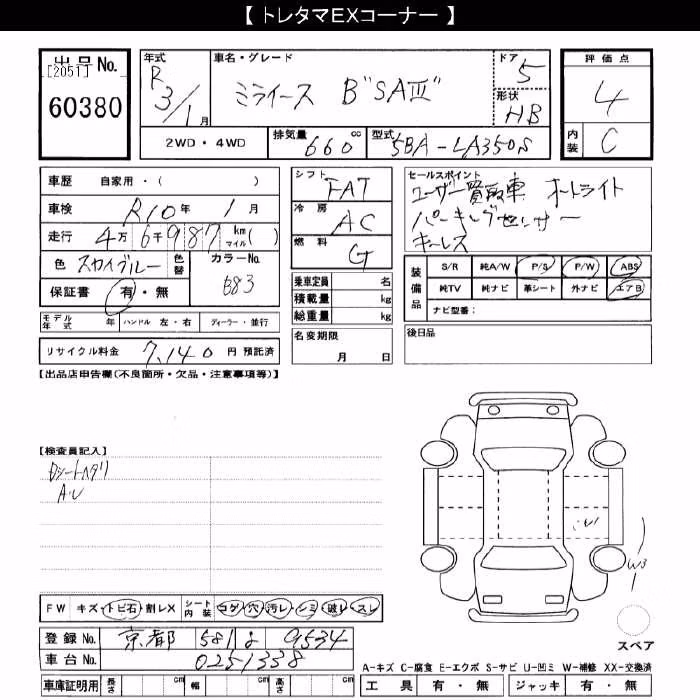 【 トレタマEXコーナー 】
出品No.
[2051]
60380
年式
R
3/1月
車名・グレード
ミライース B"SAⅢ"
ドア
5
形状
HB
評価点
4
内装
C
2WD・4WD
排気量
660 cc
型式
5BA-LA350S
車歴 自家用・( )
車検 R10年 1月
走行 4万6千987 km マイル( )
色 スカイブルー
色替
カラーNo.
B83
保証書 有・無
シフト
FAT
冷房
AC
燃料
G
乗車定員 名
積載量 kg
総重量 kg
セールスポイント
ユーザー買取車 オートライト
パーキングセンサー
キーレス
装備品
S/R 純A/W P/S P/W ABS
純TV 純ナビ 革シート 外ナビ エアB
ナビ型番:
モデル年式 年 ハンドル 左・右 ディーラー・並行
名変期限
月 日
後日品
リサイクル料金 7,140 円 預託済
【出品店申告欄(不良箇所・欠品・注意事項等)】
【検査員記入】
A・U
W3
FW キズ・トビ石・割レX
シート内装
コゲ・穴・汚レ・シミ・破レ・スレ
スペア
登録No. 京都 581 よ 9534
車台No. 0251338
A-キズ C-腐食 E-エクボ S-サビ U-凹ミ W-補修 XX-交換済
車庫証明用 長さ cm 幅 cm 高さ cm
工具 有・無 ジャッキ 有・無